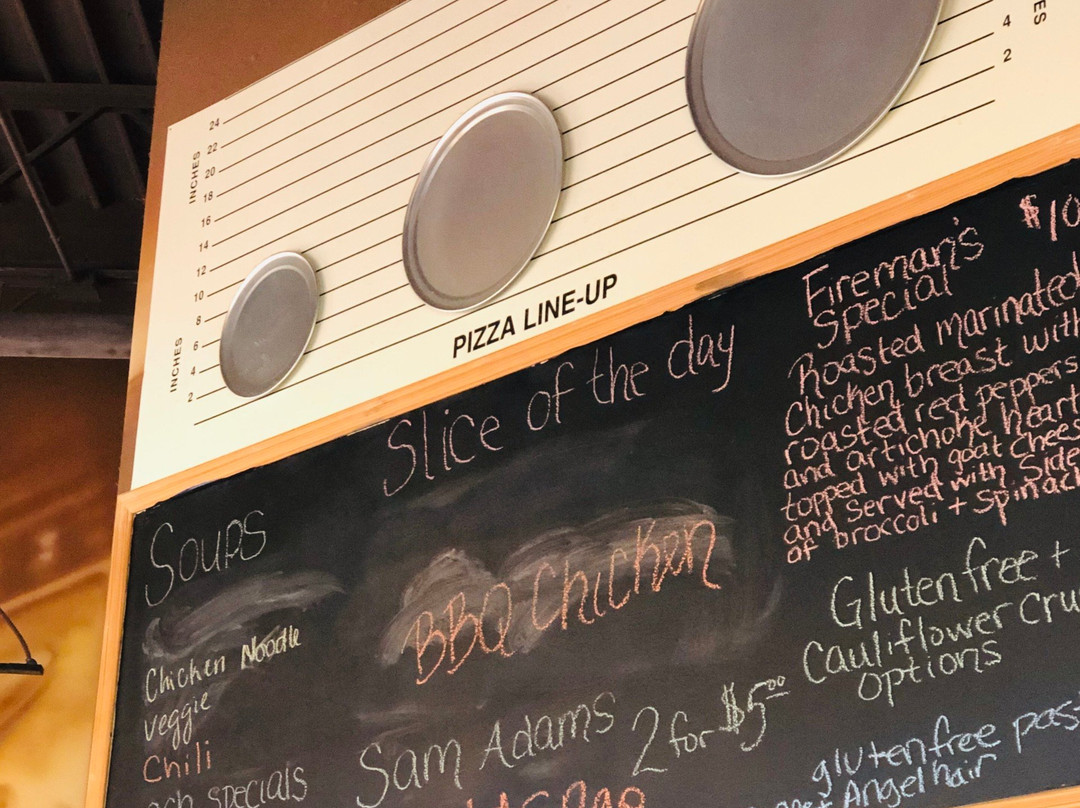 INCHES
24
22
20
18
16
14
12
10
8
6
4
2
INCHES
4
2
PIZZA LINE-UP
Slice of the day
BBQ Chicken
Sam Adams 2 for $5.00
Soups
Chicken Noodle
Veggie
Chili
SPECIALS
Fireman's $10
Special
Roasted marinated
Chicken breast with
roasted red peppers
and artichoke heart
topped with goat chees
and served with Side
of broccoli + Spinach
Gluten free +
Cauliflower Cru
options
gluten free pas
Angel hair